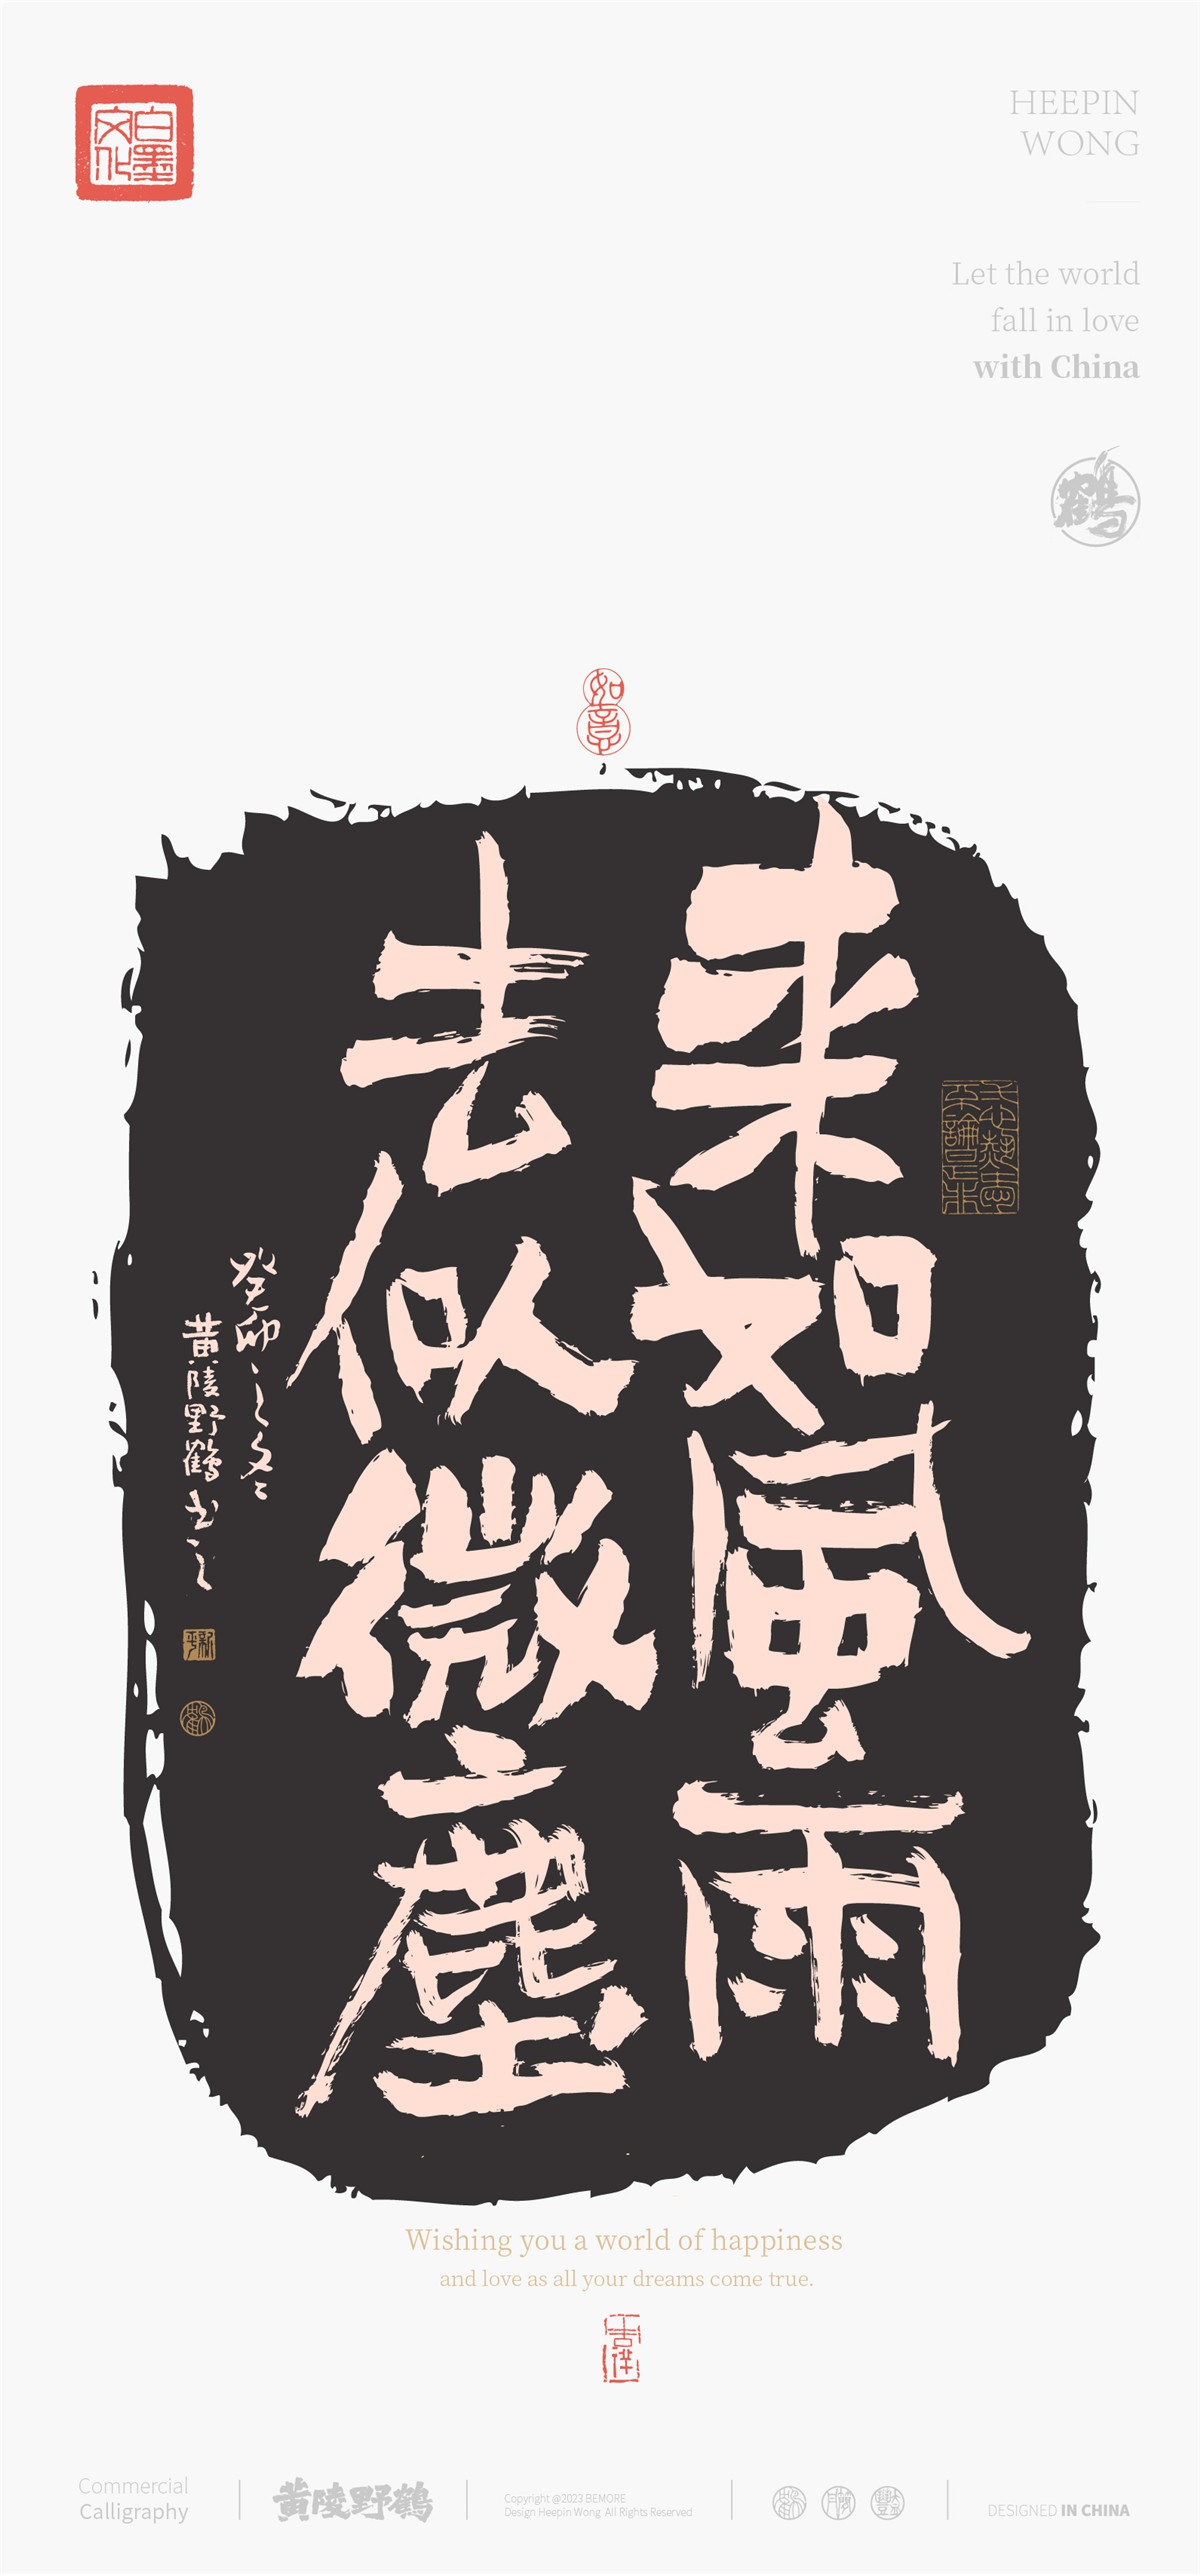 白墨
文化
HEEPIN
WONG
Let the world
fall in love
with China
鶴
如意
来如風雨
去似微塵
癸卯之冬
黄陵野鶴书之
Wishing you a world of happiness
and love as all your dreams come true.
吉祥
Commercial
Calligraphy
黄陵野鶴
Copyright @2023 BEMORE
Design Heepin Wong. All Rights Reserved
DESIGNED IN CHINA